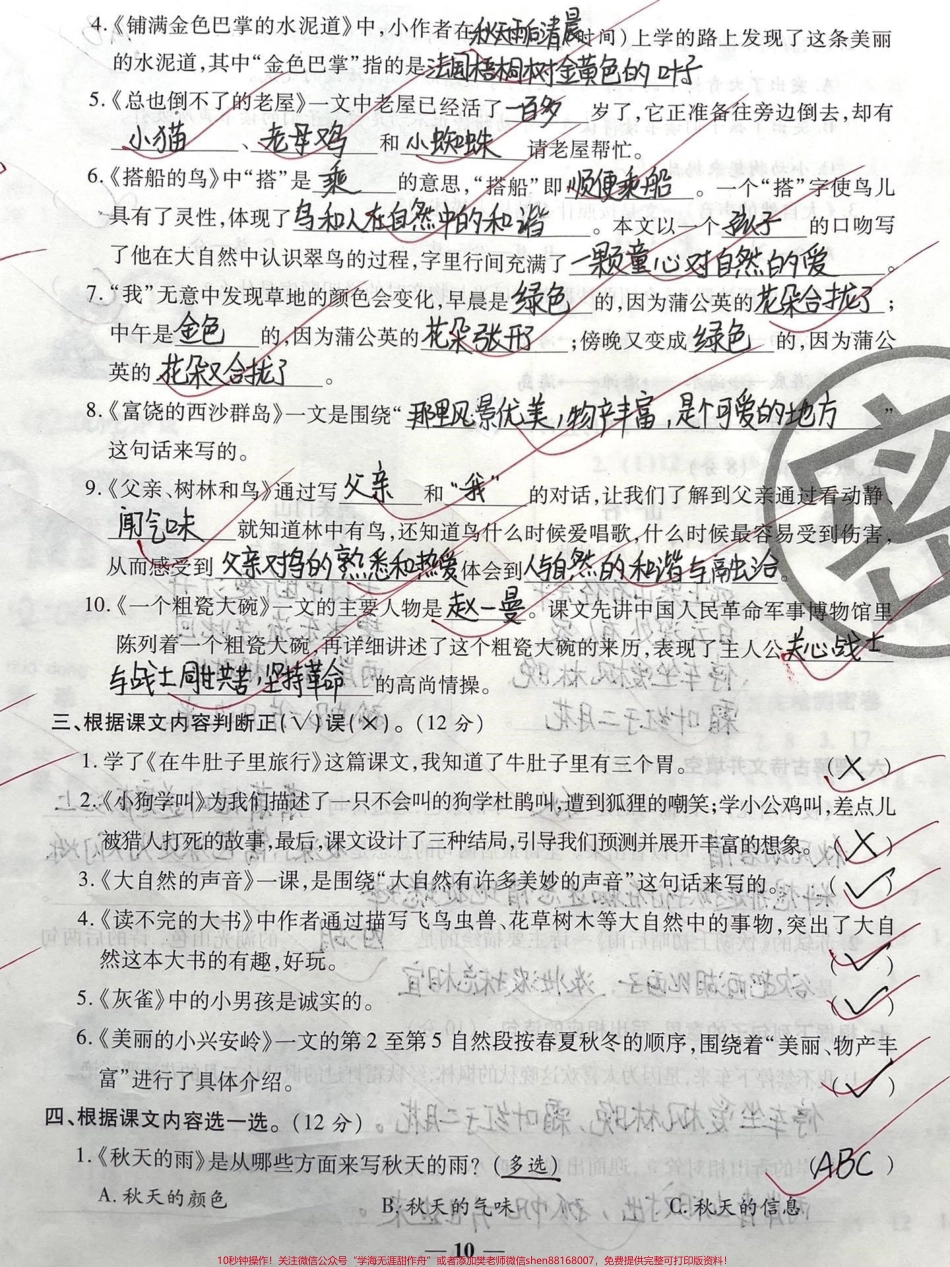 4.《铺满金色巴掌的水泥道》中,小作者在秋天雨后清晨(时间)上学的路上发现了这条美丽
的水泥道,其中“金色巴掌”指的是法国梧桐树金黄色的叶子
5.《总也倒不了的老屋》一文中老屋已经活了一百多岁了,它正准备往旁边倒去,却有
小猫、老母鸡和小蜘蛛请老屋帮忙。
6.《搭船的鸟》中“搭”是乘的意思,“搭船”即顺便乘船。一个“搭”字使鸟儿
具有了灵性,体现了鸟和人在自然中的和谐。本文以一个孩子的口吻写
了他在大自然中认识翠鸟的过程,字里行间充满了一颗童心对自然的爱。
7.“我”无意中发现草地的颜色会变化,早晨是绿色的,因为蒲公英的花朵合拢了;
中午是金色的,因为蒲公英的花朵张开;傍晚又变成绿色的,因为蒲公
英的花朵又合拢了。
8.《富饶的西沙群岛》一文是围绕“那里风景优美,物产丰富,是个可爱的地方”
这句话来写的。
9.《父亲、树林和鸟》通过写父亲和“我”的对话,让我们了解到父亲通过看动静、
闻气味就知道林中有鸟,还知道鸟什么时候爱唱歌,什么时候最容易受到伤害,
从而感受到父亲对鸟的熟悉和热爱体会到人与自然的和谐与融洽。
10.《一个粗瓷大碗》一文的主要人物是赵一曼。课文先讲中国人民革命军事博物馆里
陈列着一个粗瓷大碗,再详细讲述了这个粗瓷大碗的来历,表现了主人公关心战士
与战士同甘共苦,坚持革命的高尚情操。
三、根据课文内容判断正(√)误(×)。(12分)
1.学了《在牛肚子里旅行》这篇课文,我知道了牛肚子里有三个胃。(×)
2.《小狗学叫》为我们描述了一只不会叫的狗学杜鹃叫,遭到狐狸的嘲笑;学小公鸡叫,差点儿
被猎人打死的故事,最后,课文设计了三种结局,引导我们预测并展开丰富的想象。(×)
3.《大自然的声音》一课,是围绕“大自然有许多美妙的声音”这句话来写的。(√)
4.《读不完的大书》中作者通过描写飞鸟虫兽、花草树木等大自然中的事物,突出了大自
然这本大书的有趣,好玩。(√)
5.《灰雀》中的小男孩是诚实的。(√)
6.《美丽的小兴安岭》一文的第2至第5自然段按春夏秋冬的顺序,围绕着“美丽、物产丰
富”进行了具体介绍。(√)
四、根据课文内容选一选。(12分)
1.《秋天的雨》是从哪些方面来写秋天的雨?(多选)(ABC)
A.秋天的颜色 B.秋天的气味 C.秋天的信息
— 10 —
密
10秒钟操作!关注微信公众号“学海无涯甜作舟”或者添加樊老师微信shen88168007,免费提供完整可打印版资料!